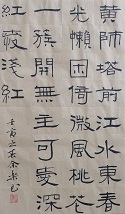 黄師塔前江水東春
光懶困倚微風桃花
一簇開無主可愛深
紅愛淺紅